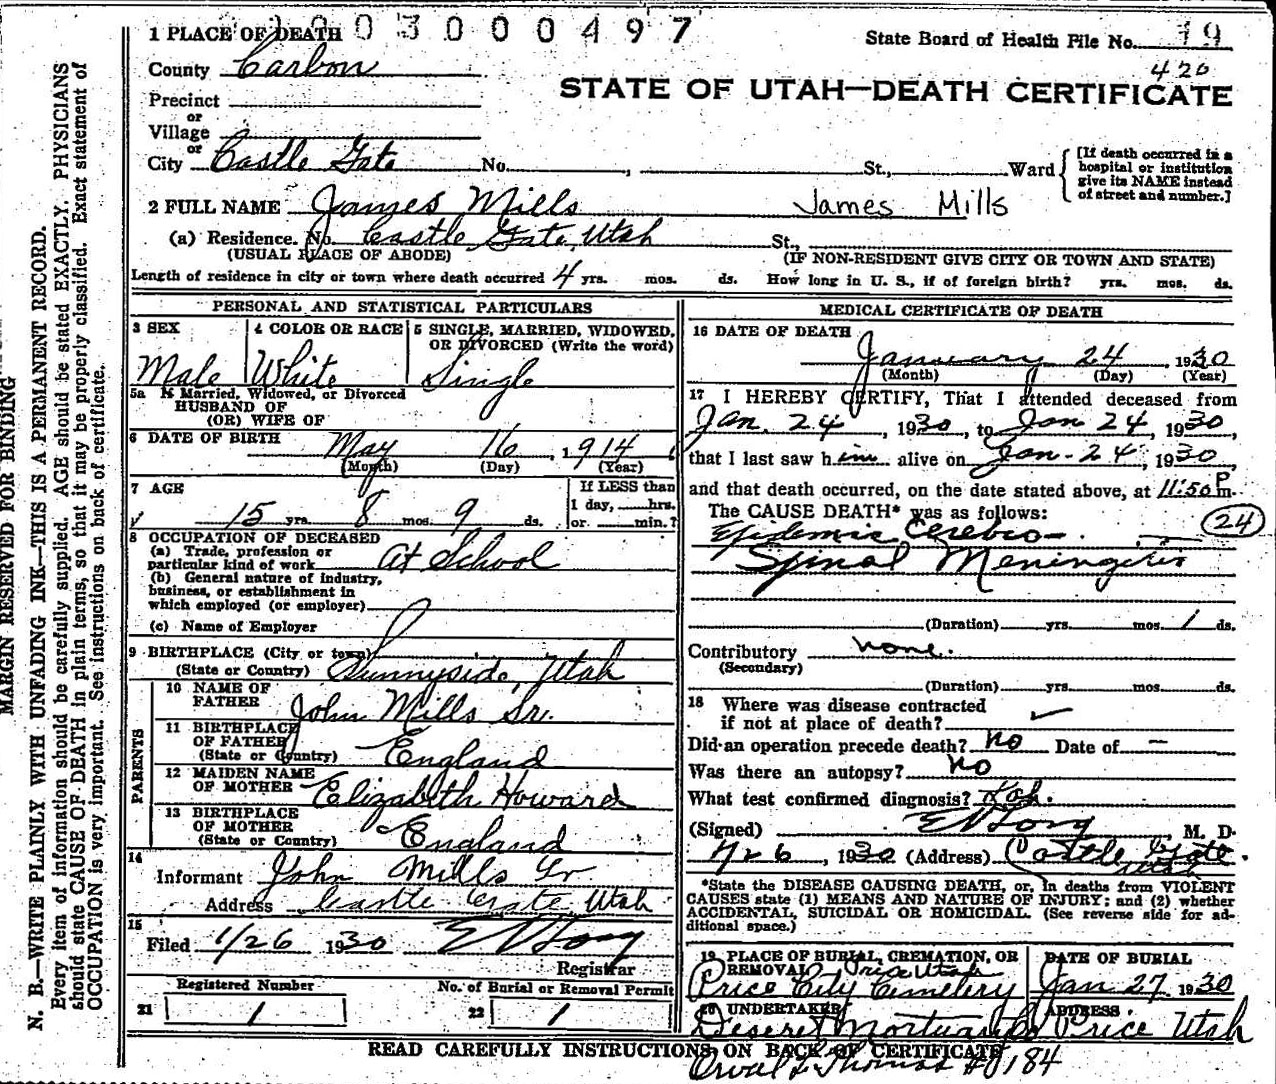 1 PLACE OF DEATH 003000497
State Board of Health File No. 19
County Carbon
420
STATE OF UTAH—DEATH CERTIFICATE
Precinct
or
Village
or
City Castle Gate No. , St., Ward
[If death occurred in a hospital or institution give its NAME instead of street and number.]
2 FULL NAME James Mills James Mills
(a) Residence. No. Castle Gate, Utah St.,
(USUAL PLACE OF ABODE) (IF NON-RESIDENT GIVE CITY OR TOWN AND STATE)
Length of residence in city or town where death occurred 4 yrs. mos. ds. How long in U. S., if of foreign birth? yrs. mos. ds.
PERSONAL AND STATISTICAL PARTICULARS
3 SEX
Male
4 COLOR OR RACE
White
5 SINGLE, MARRIED, WIDOWED, OR DIVORCED (Write the word)
Single
5a If Married, Widowed, or Divorced
HUSBAND OF
(OR) WIFE OF
6 DATE OF BIRTH May 16, 1914
(Month) (Day) (Year)
7 AGE
15 yrs. 8 mos. 9 ds.
If LESS than
1 day, hrs.
or min.?
8 OCCUPATION OF DECEASED
(a) Trade, profession or
particular kind of work At School
(b) General nature of industry,
business, or establishment in
which employed (or employer)
(c) Name of Employer
9 BIRTHPLACE (City or town)
(State or Country) Sunnyside, Utah
PARENTS
10 NAME OF
FATHER John Mills Sr.
11 BIRTHPLACE
OF FATHER
(State or Country) England
12 MAIDEN NAME
OF MOTHER Elizabeth Howard
13 BIRTHPLACE
OF MOTHER
(State or Country) England
14
Informant John Mills Jr
Address Castle Gate Utah
15
Filed 1/26 1930
Registrar
Registered Number
21 1
No. of Burial or Removal Permit
22 1
MEDICAL CERTIFICATE OF DEATH
16 DATE OF DEATH
January 24, 1930
(Month) (Day) (Year)
17 I HEREBY CERTIFY, That I attended deceased from
Jan. 24, 1930, to Jan 24, 1930,
that I last saw h im alive on Jan. 24, 1930,
and that death occurred, on the date stated above, at 11:50 P m.
The CAUSE DEATH* was as follows:
Epidemic Cerebro- 24
Spinal Meningitis
(Duration) yrs. mos. 1 ds.
Contributory none.
(Secondary)
(Duration) yrs. mos. ds.
18 Where was disease contracted
if not at place of death? ✓
Did an operation precede death? No Date of —
Was there an autopsy? No
What test confirmed diagnosis?
(Signed) , M. D.
1/26, 1930 (Address) Castle Gate.
Utah
*State the DISEASE CAUSING DEATH, or, in deaths from VIOLENT
CAUSES state (1) MEANS AND NATURE OF INJURY; and (2) whether
ACCIDENTAL, SUICIDAL OR HOMICIDAL. (See reverse side for ad-
ditional space.)
19 PLACE OF BURIAL, CREMATION, OR
REMOVAL Price Utah
Price City Cemetery
DATE OF BURIAL
Jan 27 1930
20 UNDERTAKER
Deseret Mortuary Co
ADDRESS
Price Utah
READ CAREFULLY INSTRUCTIONS ON BACK OF CERTIFICATE
Orval L Thomas # 184
MARGIN RESERVED FOR BINDING
N. B.—WRITE PLAINLY WITH UNFADING INK—THIS IS A PERMANENT RECORD.
Every item of information should be carefully supplied. AGE should be stated EXACTLY. PHYSICIANS
should state CAUSE OF DEATH in plain terms, so that it may be properly classified. Exact statement of
OCCUPATION is very important. See instructions on back of certificate.